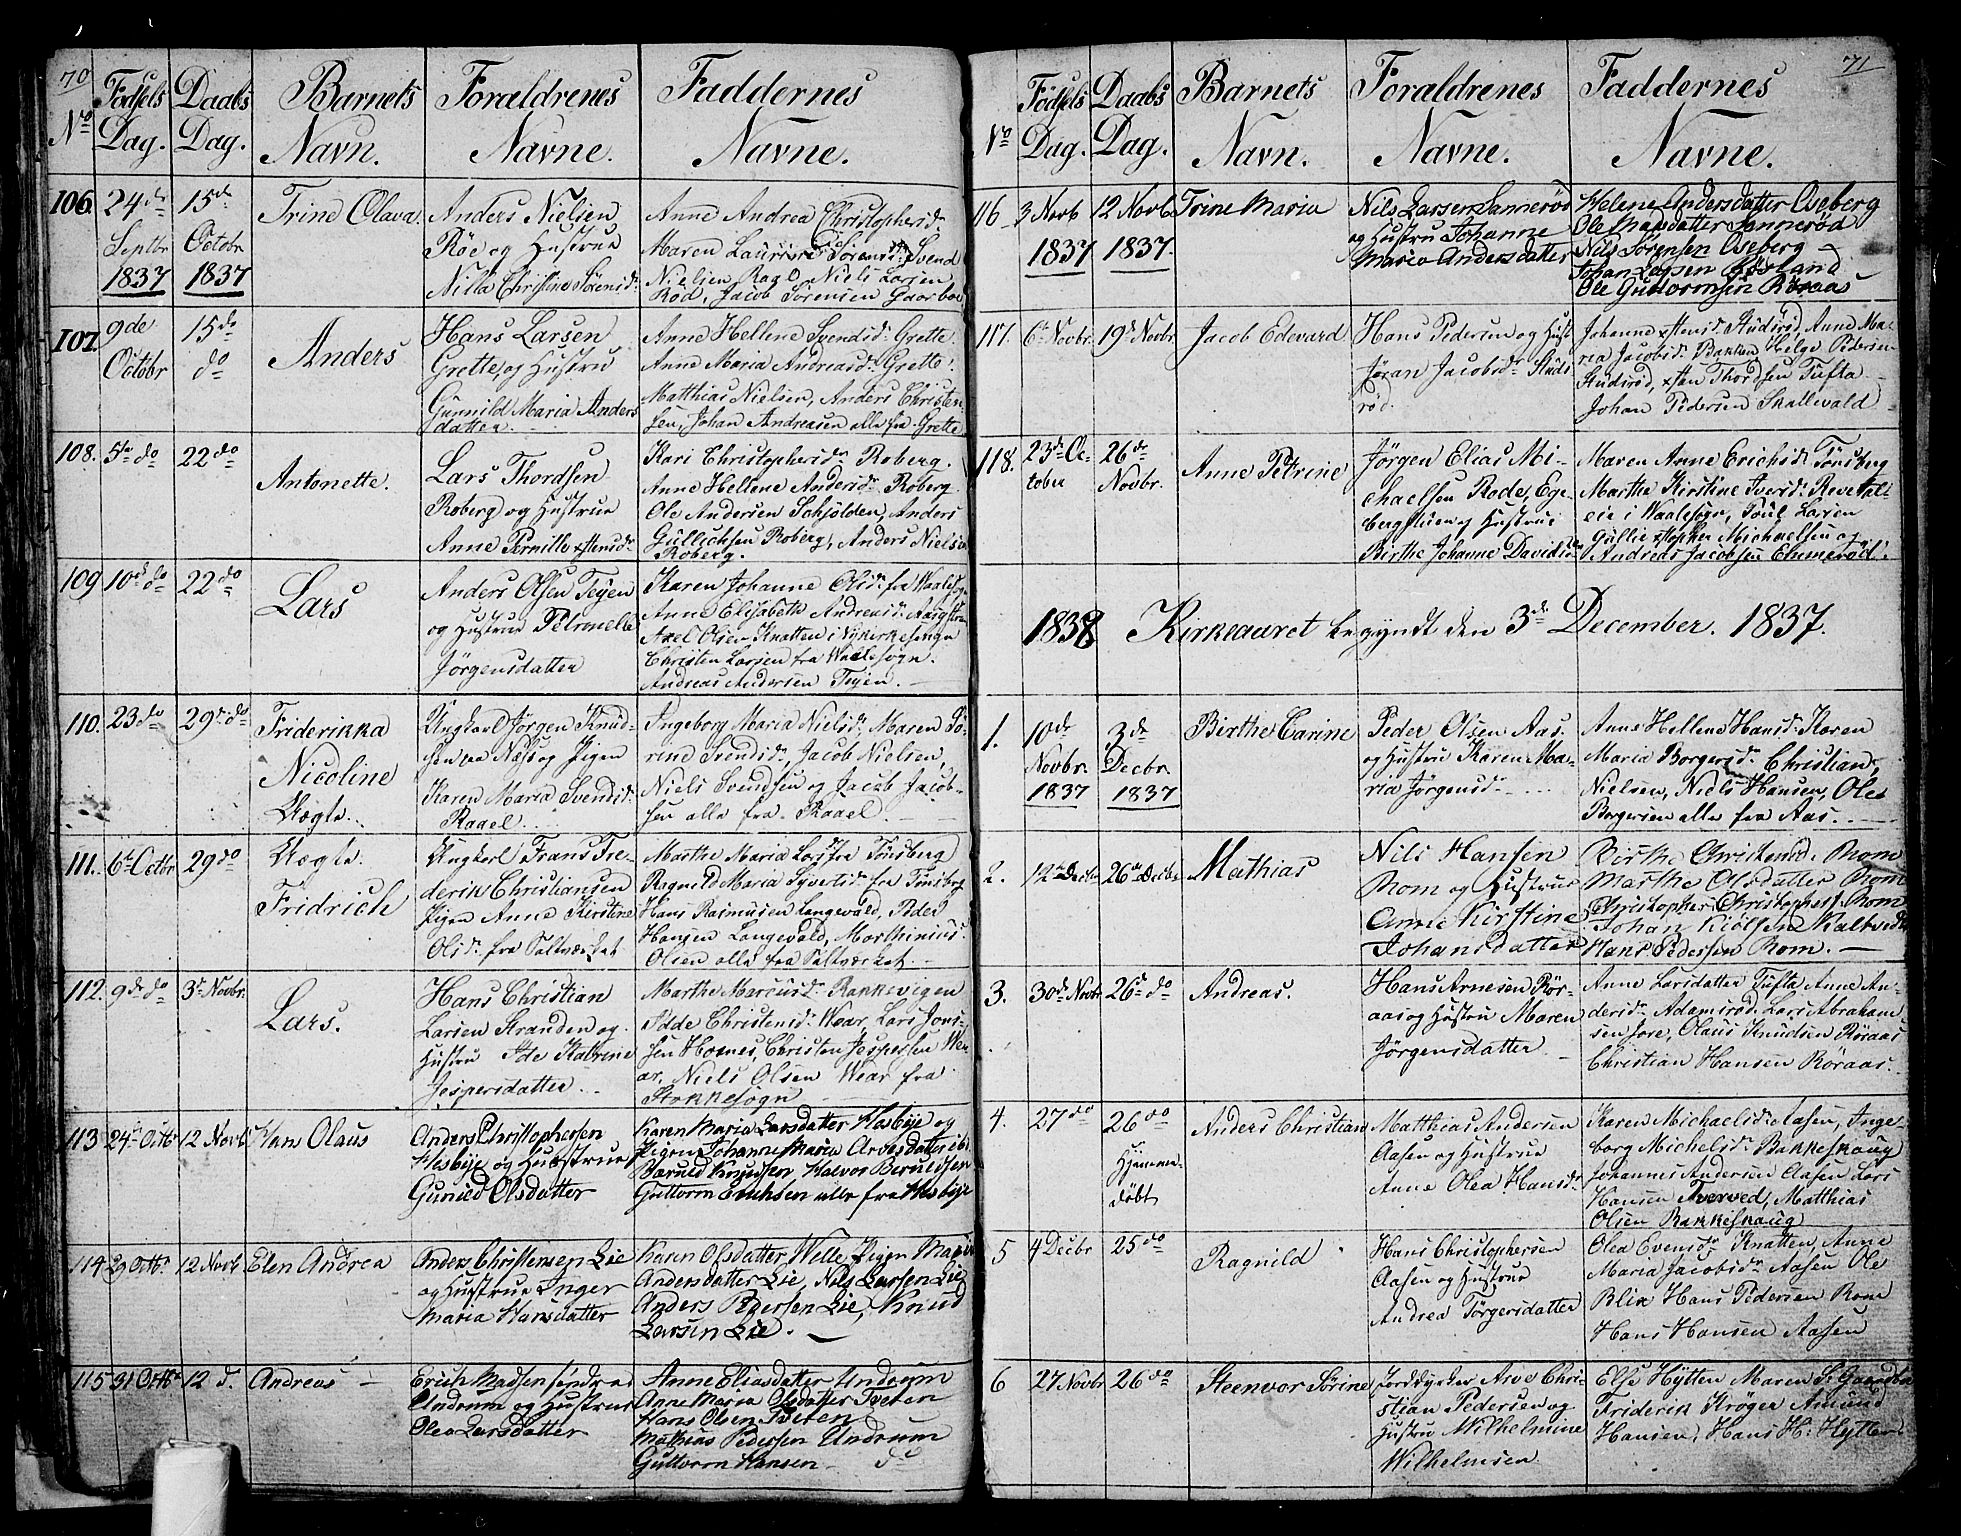 70
No
Fødsels Dag.
Daabs Dag.
Barnets Navn.
Foraldrenes Navne.
Faddernes Navne.
106.
24de Septbr 1837
15de Octobr 1837
Trine Olava
Anders Nielsen
Røe og Hustrue
Nilla Christine Sørensdr
Anne Andrea Christophersdr
Maren Laurine Sørensdr Svend
Nielsen Rag, Niels Larsen
Rød, Jacob Sørensen Gaarboe
107.
9de Octobr
15de do
Anders
Hans Larsen
Grette, og Hustru
Gunnild Maria Anders
datter.
Anne Hellene Svendsdr Grette
Anne Maria Andreasdr Grette.
Matthias Nielsen, Anders Christen-
sen, Johan Andreasen alle fra Grette
108.
5te do
22 do
Antonette.
Lars Thordsen
Roberg og Hustrue
Anne Pernille xstensdr
Kari Christophersdr Roberg.
Anne Hellene Andersdr Roberg
Ole Andersen Schjølden, Anders
Gullichsen Roberg, Anders Nielsen
Roberg.
109
10de do
22 do
Lars
Anders Olsen Teyen
og Hustrue Petronelle
Jörgensdatter
Karen Johanne Olsdr fra Waalesogn
Anne Elisabeth Andreasdr Aasgstran
Axel Olsen Knatten i Nykirkesogn
Christen Larsen fra Waalesogn.
Andreas Andersen Teyen.
110.
23 do
29de do
Friderikka
Nicoline
Uægte.
Ungkarl Jørgen Knud-
sen paa Næs og Pigen
Karen Maria Svendsdr
Raael.
Ingeborg Maria Nielsdr, Maren Sø-
rine Svendsdr, Jacob Nielsen,
Niels Svendsen og Jacob Jacob-
sen alle fra Raael.
111.
6te Octbr
29 do
Uægte.
Fridrich
Ungkarl Frans Fre-
derik Christiansen
Pigen Anne Kirstine
Olsdr fra Saltværket
Marthe Maria Lars fra Tønsberg
Ragnild Maria Syvertsdr fra Tønsberg
Hans Rasmusen Langevald, Peder
Hansen Langevald, Morthinius
Olsen alle fra Saltværket.
112.
9de do
3de Novbr.
Lars.
Hans Christian
Larsen Stranden og
Hustru Ide Katrine
Jespersdatter.
Marthe Marcusdr Rankevigen
Idde Christensdr Wear, Lars Jons-
sen Homes, Christen Jespersen We-
ar, Niels Olsen Wear fra
Stokkesogn
113
24de Octbr
12 Novb
Hans Olaus
Anders Christophersen
Hesbye og Hustrue
Guniid Olsdatter
Karen Maria Larsdatter Hesbye og
Pigen Johanne Maria Arvesdatter ibd
Barnid Knudsen Halvor Berntdsen
Guttorm Erichsen alle fra Hesbye
114
29 Octbr
12 Novb.
Elen Andrea
Anders Christensen Lie
og Hustrue Inger
Maria Hansdatter
Karen Olsdatter Welle, Pigen Maria
Andersdatter Lie, Nils Larsen Lie
Anders Pedersen Lie, Knud
Larsen Lie.
115
31 Octbr
12 d.
Andreas
Erich Madsen søndre
Undrum og Hustrue
Olea Larsdatter
Anne Eliasdatter Undrum
Anne Maria Olsdatter Tveten
Hans Olsen Tveten
Mathias Pedersen Undrum
Guttorm Hansen do
71
No
Fødsels Dag.
Daabs Dag.
Barnets Navn.
Foraldrenes Navne.
Faddernes Navne.
116
3 Novb 1837
12 Novb 1837.
Trine Maria
Nils Larsen Sannerød
og Hustru Johanne
Maria Andersdatter
Helene Andersdatter Oseberg
Ole Madsdatter Sannerød
Nils Sørensen Oseberg
Johan Larsen Børsland
Ole Guttormsen Røraas
117.
6te Novbr.
19de Novbr.
Jacob Edevard
Hans Pedersen og Hust
Jøran Jacobsdr Studs
rød.
Johanne xstensdr Studsrød, Anne Ma-
ria Jacobsdr Bakken Helge Pedersen
Studsrød, xsten Thordsen Tufta
Johan Pedersen Skallevald
118.
23de Oc-
tober
26de
Novbr.
Anne Petrine
Jörgen Elias Mi-
chaelsen Rode, Ege-
berg Huen og Hustrue
Birthe Johanne Davidsdr
Maren Anne Erichsdr Tönsberg
Marthe Kirstine Iversdr Revetal-
eie i Waalesogn, Poul Larsen
Gullie xstopher Michaelsen og
Andreas Jacobsen Ehmerød.
1838 Kirkeaaret begyndt den 3de December. 1837.
1.
10de Novbr. 1837
3de Decbr. 1837
Birthe Carine
Peder Olsen Aas.
og Hustru Karen Ma-
ria Jørgensdr
Anne Hellene Hansdr Karen
Maria Borgersdr Christian
Nielsen, Niels Hansen, Ole
Borgersen alle fra Aas.
2.
12te Decbr
26de Decbr
Mathias
Nils Hansen
Rom og Hustrue
Anne Kirstine
Johansdatter
Birthe Christensdr Rom
Marthe Olsdatter Rom
Christopher Christophers Rom
Johan Kiölsen Kaltvedt
Hans Pedersen Rom.
3.
30de Novbr
26de do
Andreas.
Hans Arnesen Rör-
aas og Hustru Maren
Jörgensdatter
Anne Larsdatter Tufta Anne An-
dersdr Adamsrød. Lars Abraham-
sen Jore, Olaus Knudsen Röraas
Christian Hansen Röraas.
4.
27 do
26 do
Hjemme-
döbt
Anders Christian
Matthias Andersen
Aasen og Hustrue
Anne Olea Hansdr
Karen Michaelsdr Aasen, Inge-
borg Michelsdr Bakkeskaug
Johannes Andersen Aasen Lars
Hansen Tverved, Matthias
Olsen Bakkeskaug
5
4 Decbr
25 do
Ragnild
Hans Christophersen
Aasen og Hustrue
Andrea Törgersdatter
Olea Evensdr Knatten, Anne
Maria Jacobsdr Aasen Ole
Blix Hans Pedersen Rom
Hans Hansen Aasen
6
27 Novbr
26 do
Steenvor Sörine
Jorddyrker Arve Chri-
stian Pedersen og
Hustru Wilhelmine
Wilhelmsen
Else Hytten Maren S. Gaardbo
Friderik Kröger Amund
Hansen, Hans H. Hytten